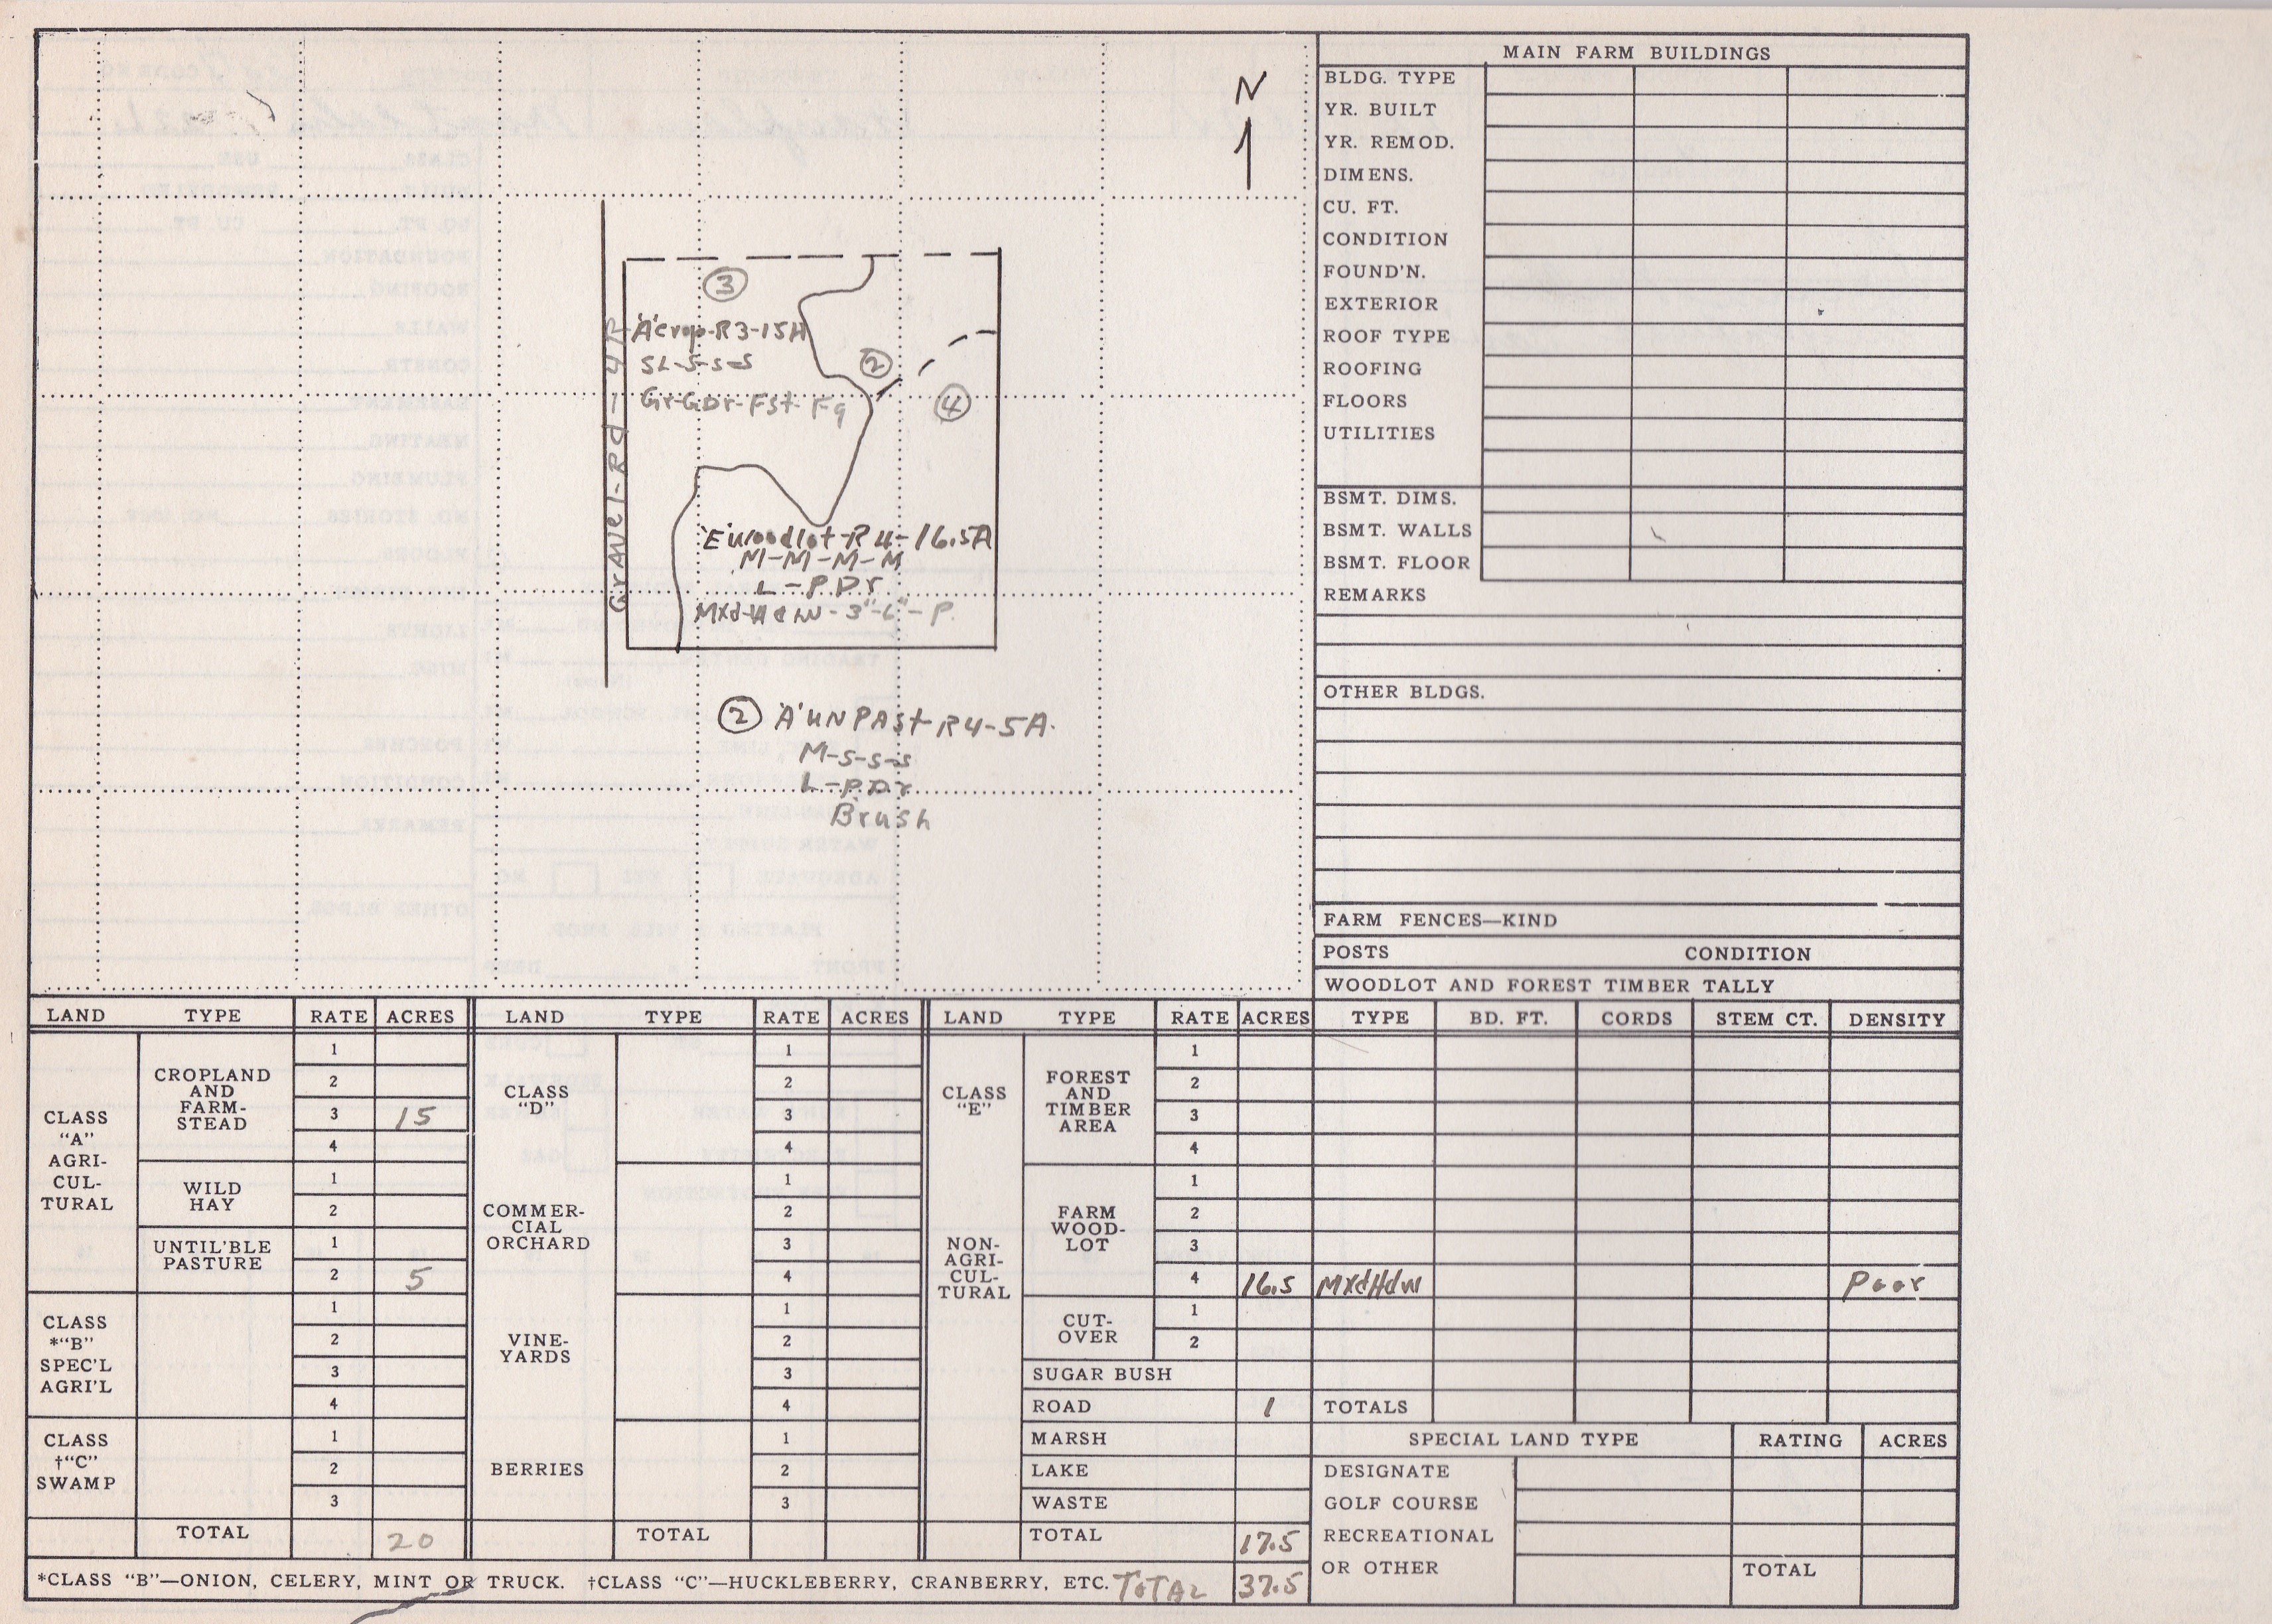 N
3
'A'crop-R3-15A
SL-S-s-s
Gr-GDr-Fst-Fg
2
4
GrAVel-Rd 4R
'E'woodlot-R4-16.5A
M-M-M-M
L-P.Dr
Mxd-Hdw-3"-6"-P.
2 'A'UNPAst R4-5A.
M-s-s-s
L-P.Dr
Brush
MAIN FARM BUILDINGS
BLDG. TYPE
YR. BUILT
YR. REMOD.
DIMENS.
CU. FT.
CONDITION
FOUND'N.
EXTERIOR
ROOF TYPE
ROOFING
FLOORS
UTILITIES
BSMT. DIMS.
BSMT. WALLS
BSMT. FLOOR
REMARKS
OTHER BLDGS.
FARM FENCES—KIND
POSTS CONDITION
WOODLOT AND FOREST TIMBER TALLY
LAND TYPE RATE ACRES
CLASS
"A"
AGRI-
CUL-
TURAL
CROPLAND
AND
FARM-
STEAD
1
2
3 15
4
WILD
HAY
1
2
UNTIL'BLE
PASTURE
1
2 5
CLASS
*"B"
SPEC'L
AGRI'L
1
2
3
4
CLASS
†"C"
SWAMP
1
2
3
TOTAL 20
LAND TYPE RATE ACRES
CLASS
"D"
1
2
3
4
COMMER-
CIAL
ORCHARD
1
2
3
4
VINE-
YARDS
1
2
3
4
BERRIES
1
2
3
TOTAL
LAND TYPE RATE ACRES
CLASS
"E"
NON-
AGRI-
CUL-
TURAL
FOREST
AND
TIMBER
AREA
1
2
3
4
FARM
WOOD-
LOT
1
2
3
4 16.5 MxdHdw Poor
CUT-
OVER
1
2
SUGAR BUSH
ROAD 1
MARSH
LAKE
WASTE
TOTAL 17.5
TYPE BD. FT. CORDS STEM CT. DENSITY
TOTALS
SPECIAL LAND TYPE RATING ACRES
DESIGNATE
GOLF COURSE
RECREATIONAL
OR OTHER TOTAL
*CLASS "B"—ONION, CELERY, MINT OR TRUCK. †CLASS "C"—HUCKLEBERRY, CRANBERRY, ETC. TOTAL 37.5